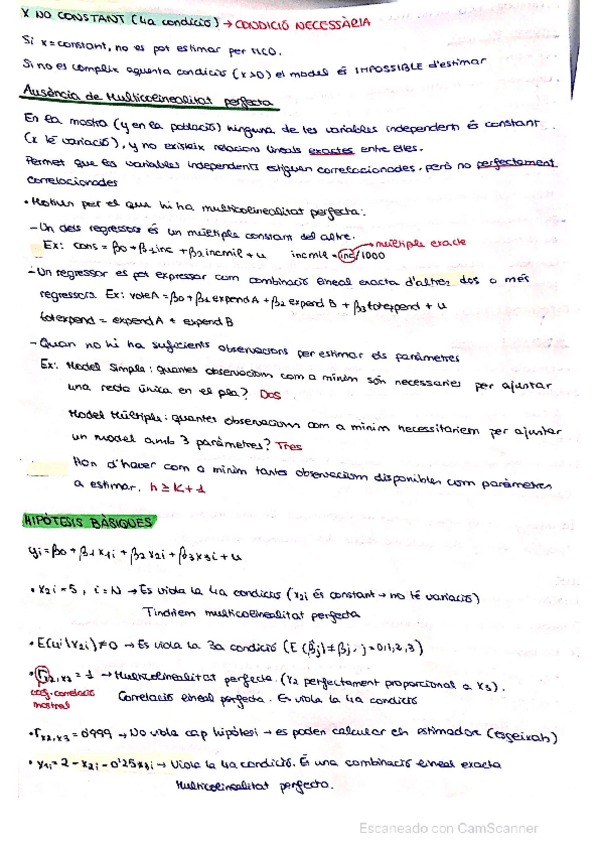 X NO CONSTANT (4a condició) → CONDICIÓ NECESSÀRIA
Si x=constant, no es pot estimar per MCO.
Si no es compleix aquesta condició (x>0) el model és IMPOSSIBLE d'estimar
Ausència de Multicolinealitat perfecta
En la mostra (y en la població) ninguna de les variables independents és constant
(x té variació), y no existeix relacions lineals exactes entre elles.
Permet que les variables independents estiguen correlacionades, però no perfectament
correlacionades
• Motius per el que hi ha multicolinealitat perfecta:
- Un dels regressors és un múltiple constant del altre.
múltiple exacte
Ex: cons = β0 + β1inc + β2incmil + u incmil = inc/1000
- Un regressor es pot expressar com combinació lineal exacta d'altres dos o més
regressors Ex: voteA = β0 + β1 expend A + β2 expend B + β3 totexpend + u
totexpend = expend A + expend B
- Quan no hi ha suficients observacions per estimar els paràmetres
Ex: Model Simple: quantes observacions com a mínim són necessaries per ajustar
una recta única en el pla? Dos
Model Múltiple: quantes observacions com a mínim necessitariem per ajustar
un model amb 3 paràmetres? Tres
Han d'haver com a mínim tantes observacions disponibles com paràmetres
a estimar. n ≥ K + 1
HIPÒTESIS BÀSIQUES
yi = β0 + β1x1i + β2x2i + β3x3i + u
• x2i = 5, i = N → Es viola la 4a condició (x2i és constant → no té variació)
Tindriem multicolinealitat perfecta
• E(ui|x2i) ≠ 0 → Es viola la 3a condició (E(β̂j) ≠ βj, j = 0,1,2,3)
• rx2,x3 = 1 → Multicolinealitat perfecta. (x2 perfectament proporcional a x3).
coef. correlació
mostral
Correlació lineal perfecta. Es viola la 4a condició
• rx2,x3 = 0'999 → No viola cap hipòtesi → es poden calcular els estimadors (esgeixats)
• x1i = 2 - x2i - 0'25x3i → Viola la 4a condició. És una combinació lineal exacta
Multicolinealitat perfecta.
Escaneado con CamScanner